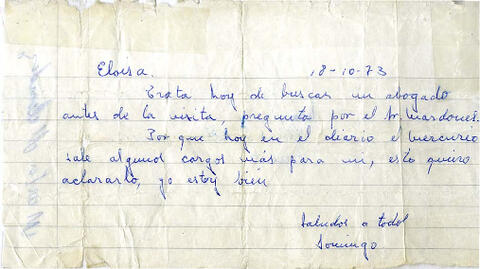 Eloisa.
18-10-73
Trata hoy de buscar un abogado
antes de la visita, pregunta por el Sr. Mardones.
Por que hoy en el diario el mercurio
sale algunos cargos más para mi, esto quiero
aclararlo, yo estoy bien
Saludos a todos
Domingo